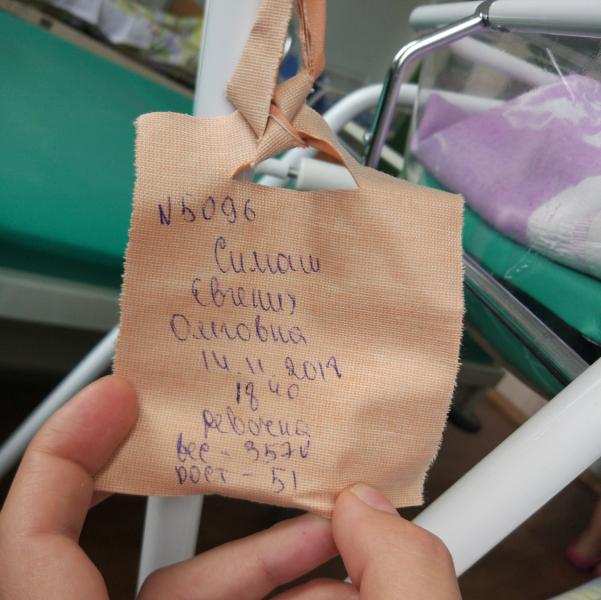 N5096
Симаш
Евгения
Олеговна
14.11.2018
18 40
девочка
вес - 3570
рост - 51